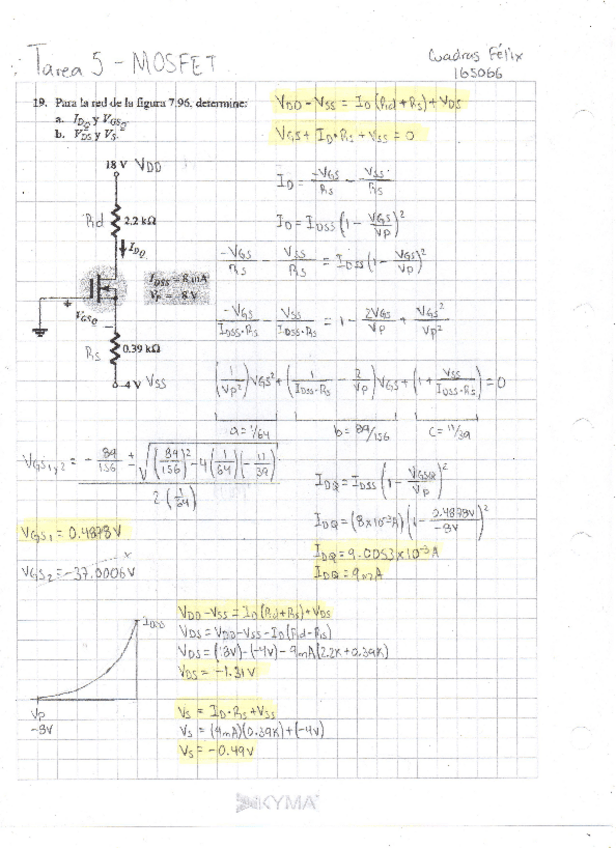 Tarea 5 - MOSFET
Cuadras Félix
165066
19. Para la red de la figura 7.96, determine:
a. I_DQ y V_GSQ.
b. V_DS y V_S.
V_DD - V_SS = I_D (Rd + Rs) + V_DS
V_GS + I_D·Rs + V_SS = 0
18 V V_DD
Rd 2.2 kΩ
I_DQ
I_DSS = 8 mA
V_P = -8 V
V_GSQ
Rs 0.39 kΩ
-4 V V_SS
I_D = -V_GS/Rs - V_SS/Rs
I_D = I_DSS (1 - V_GS/V_P)²
-V_GS/Rs - V_SS/Rs = I_DSS (1 - V_GS/V_P)²
-V_GS/I_DSS·Rs - V_SS/I_DSS·Rs = 1 - 2V_GS/V_P + V_GS²/V_P²
(1/V_P²) V_GS² + (1/I_DSS·Rs - 2/V_P) V_GS + (1 + V_SS/I_DSS·Rs) = 0
a = 1/64 b = 89/156 c = 11/39
V_GS1y2 = - 89/156 ± √((89/156)² - 4(1/64)(-11/39)) / 2(1/64)
V_GS1 = 0.4878V
V_GS2 = -37.0006V x
I_DQ = I_DSS (1 - V_GSQ/V_P)²
I_DQ = (8x10⁻³A)(1 - 0.4878V/-8V)²
I_DQ = 9.0053x10⁻³A
I_DQ = 9mA
I_DSS
V_P
-8V
V_DD - V_SS = I_D (Rd + Rs) + V_DS
V_DS = V_DD - V_SS - I_D (Rd - Rs)
V_DS = (18V) - (-4V) - 9mA (2.2K + 0.39K)
V_DS = -1.31V
V_S = I_D · Rs + V_SS
V_S = (9mA)(0.39K) + (-4V)
V_S = -0.49V
KYMA